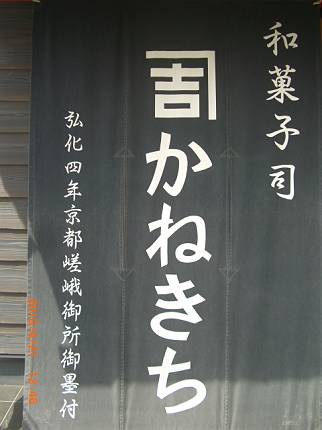 和菓子司
吉 かねきち
弘化四年京都嵯峨御所御墨付